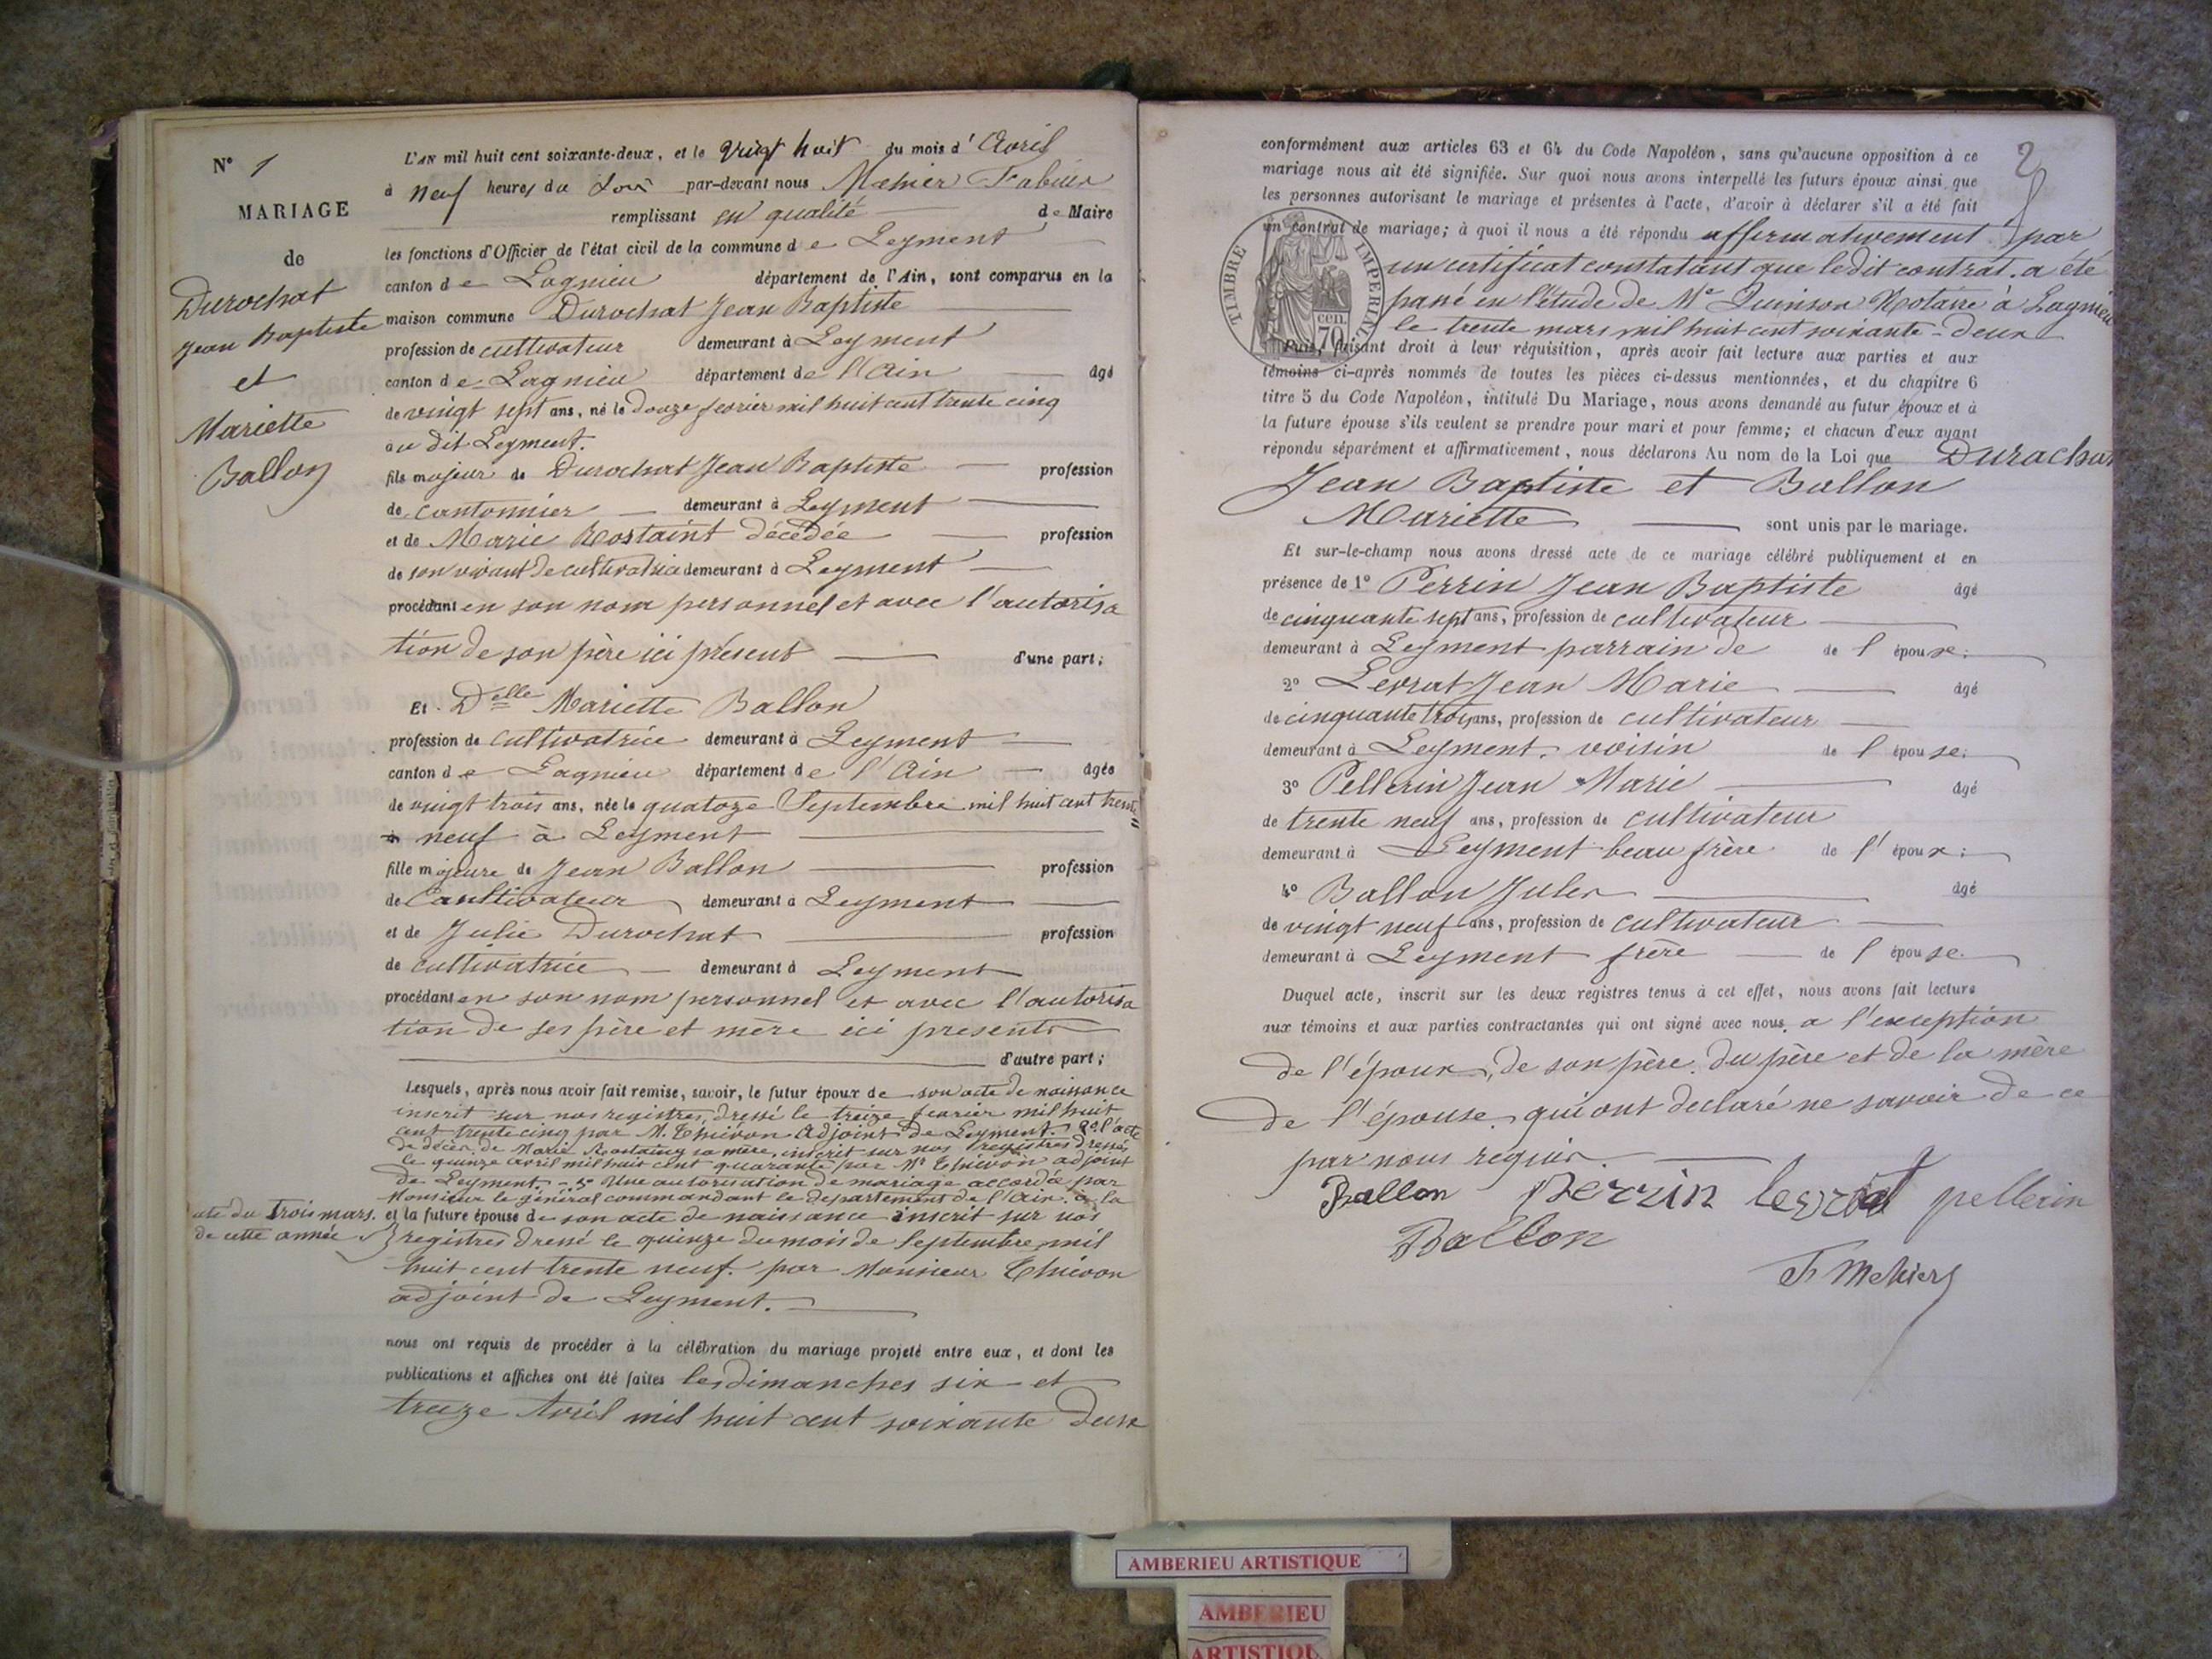 N° 1
MARIAGE
de
Durochat
Jean Baptiste
et
Mariette
Ballon
L'AN mil huit cent soixante-deux, et le vingt huit du mois d'Avril
à neuf heures du Soir par-devant nous Mehier Fabien
remplissant en qualité de Maire
les fonctions d'Officier de l'état civil de la commune de Leyment
canton de Lagnieu département de l'Ain, sont comparus en la
maison commune Durochat Jean Baptiste
profession de cultivateur demeurant à Leyment
canton de Lagnieu département de l'Ain âgé
de vingt sept ans, né le douze fevrier mil huit cent trente cinq
au dit Leyment.
fils majeur de Durochat Jean Baptiste profession
de cantonnier demeurant à Leyment
et de Marie Rostaint décédée profession
de son vivant de cultivatrice demeurant à Leyment
procédant en son nom personnel et avec l'autorisa
tion de son père ici présent d'une part;
Et Delle Mariette Ballon
profession de cultivatrice demeurant à Leyment
canton de Lagnieu département de l'Ain âgée
de vingt trois ans, née le quatoze Septembre mil huit cent trente
neuf à Leyment
fille majeure de Jean Ballon profession
de Caultivateur demeurant à Leyment
et de Julie Durochat profession
de cultivatrice demeurant à Leyment
procédant en son nom personnel et avec l'autorisa
tion de ses père et mère ici presents
d'autre part;
Lesquels, après nous avoir fait remise, savoir, le futur époux de son acte de naissance
inscrit sur nos registres, dressé le treize fevrier mil huit
cent trente cinq par M. Thiévon Adjoint de Leyment. 2° l'acte
de décès de Marie Rostaing sa mère, inscrit sur nos registres dressés
le quinze avril mil huit cent quarante par Mr Thiévon adjoint
de Leyment. - 3° Une autorisation de mariage accordée par
Monsieur le général commandant le departement de l'Ain. a la
ate du Trois mars.
de cette année
et la future épouse de son acte de naissance inscrit sur nos
registres dressé le quinze du mois de Septembre mil
huit cent trente neuf. par Monsieur Thievon
adjoint de Leyment.
nous ont requis de procéder à la célébration du mariage projeté entre eux, et dont les
publications et affiches ont été faites les dimanches six et
treize Avril mil huit cent soixante deux
2
conformément aux articles 63 et 64 du Code Napoléon, sans qu'aucune opposition à ce
mariage nous ait été signifiée. Sur quoi nous avons interpellé les futurs époux ainsi que
les personnes autorisant le mariage et présentes à l'acte, d'avoir à déclarer s'il a été fait
un contrat de mariage; à quoi il nous a été répondu affirmativement par
un certificat constatant que le dit contrat. a été
passé en l'étude de Me Quinson Notaire à Lagnieu
le trente mars mil huit cent soixante-deux
TIMBRE IMPERIAL
70 cen.
Puis, faisant droit à leur réquisition, après avoir fait lecture aux parties et aux
témoins ci-après nommés de toutes les pièces ci-dessus mentionnées, et du chapitre 6
titre 5 du Code Napoléon, intitulé Du Mariage, nous avons demandé au futur époux et à
la future épouse s'ils veulent se prendre pour mari et pour femme; et chacun d'eux ayant
répondu séparément et affirmativement, nous déclarons Au nom de la Loi que Durachat
Jean Baptiste et Ballon
Mariette sont unis par le mariage.
Et sur-le-champ nous avons dressé acte de ce mariage célébré publiquement et en
présence de 1° Perrin Jean Baptiste âgé
de cinquante sept ans, profession de cultivateur
demeurant à Leyment parrain de de l'épouse;
2° Levrat Jean Marie âgé
de cinquante trois ans, profession de cultivateur
demeurant à Leyment. voisin de l'épouse;
3° Pellerin Jean Marie âgé
de trente neuf ans, profession de cultivateur
demeurant à Leyment beau frère de l'époux;
4° Ballon Jules âgé
de vingt neuf ans, profession de cultivateur
demeurant à Leyment frère de l'épouse.
Duquel acte, inscrit sur les deux registres tenus à cet effet, nous avons fait lecture
aux témoins et aux parties contractantes qui ont signé avec nous. a l'exception
de l'époux, de son père. du père et de la mère
de l'épouse, qui ont declaré ne savoir de ce
par nous requis.
Ballon Perrin levrat pellerin
Ballon
F. Mehier
AMBERIEU ARTISTIQUE
AMBERIEU
ARTISTIQU